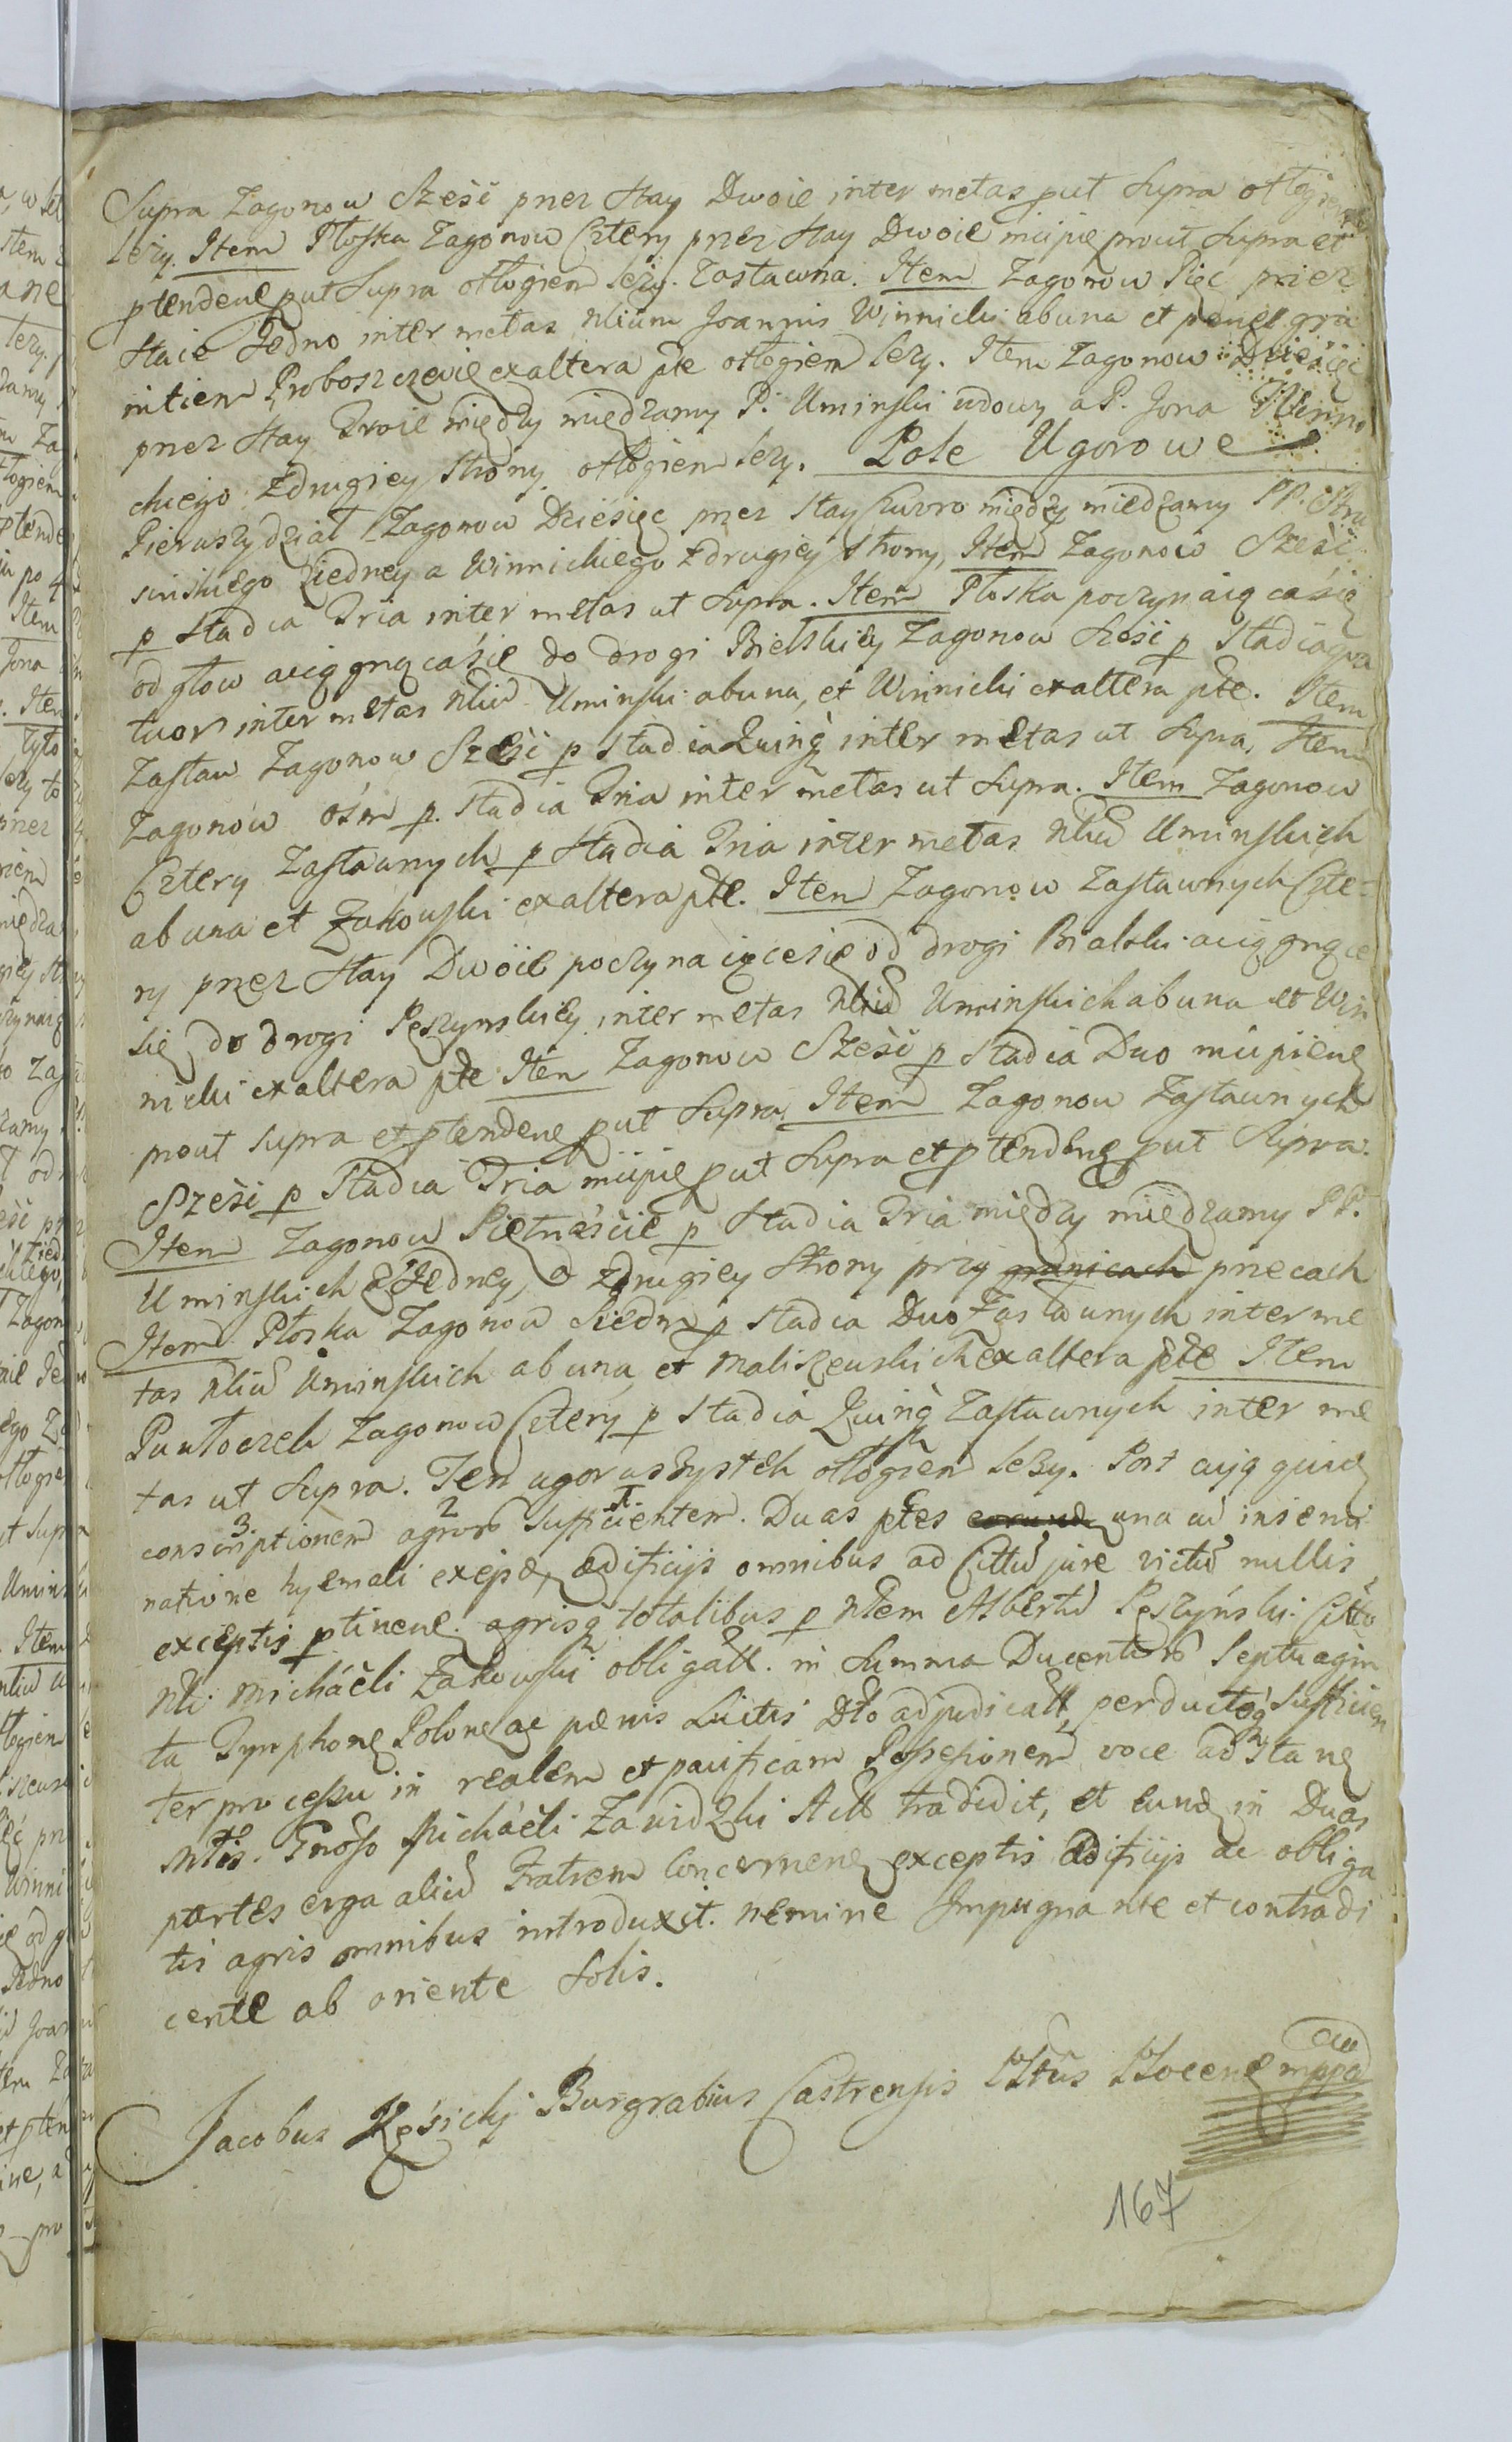 Supra Zagonow Sześć przez Stay Dwoie inter metas put Supra otłogiem
leży. Item Płoska Zagonow Cztery przez Stay Dwoie incipie prout Supra et
ptendene put Supra otłogiem leży. Zastawna. Item Zagonow Pięć przez
Staie Jedno inter metas Nlium Joannis Winnicki ab una et penes gra
nitiem Proboszczevie ex altera pte otłogiem leży. Item Zagonow Dziesięć
przez Stay Troie między miedzamy P. Uminski wdowy a P. Jona Winni
ckiego zdrugiey Strony otłogiem leży. Pole Ugorowe
Pierwszy dział Zagonow Dziesięc przez Stay Czworo między miedzamy PP.
sinskiego ziedney a Winnickiego zdrugiey strony, Item Zagonow Sześć
p Stadia Tria inter metas ut Supra. Item Płoska poczynaiąca się
od głow aciągnąca się do drogi Bielskiey Zagonow Sześć p Stadia qua
tuor inter metas Nliū Uminski ab una, et Winnicki ex altera pte. Item
Zastaw Zagonow Sześć p Stadia Quinq inter metas ut Supra, Item
Zagonow ośm p. Stadia Tria inter metas ut Supra. Item Zagonow
Cztery Zastawnych p Stadia Tria inter metas Nliū Uminskich
ab una et Zakowski ex altera pte. Item Zagonow Zastawnych Czte-
ry przez Stay Dwoie poczynaiącesię od drogi Bialski aciągnące
się do drogi Pęszynskiey inter metas Nliū Uminskich ab una et Win
nicki ex altera pte Item Zagonow Sześć p Stadia Duo incipiene
prout Supra et ptendene put Supra, Item Zagonow Zastawnych
Sześć p Stadia Tria incipie put Supra et ptendene put Supra.
Item Zagonow Piętnaście p Stadia Tria między miedzamy PP.
Uminskich z Jedney, a zdrugiey Strony przy granicach przecach
Item Płoska Zagonow Siedm p Stadia Duo Zastawnych inter me
tas Nliū Uminskich ab una, et Maliszewskich ex altera pte Item
Pułtoczek Zagonow Cztery p Stadia Quinq Zastawnych inter me
tas ut Supra. Ten ugor wszystek otłogiem leży. Post cujq quidē
3. 2 1.
conscriptionem agror Sufficientem. Duas ptes eorund una cū insemi
natione hyemali exejsa, ædificijs omnibus ad Cittū jure victū nullis
exceptis ptinene. agrisq totalibus p Nlem Albertū Pęszyński Citto
Nli Michaëli Zakowski obligatt. in Summa Ducentor Septuagin
ta Tymphone Polone ac pænis Luitis Dto adjudicatt, perducto q Sufficien
ter processu in realem et pacificam Possesionem voce ad sta ne
Mltis. Gnoso Michaëli Zawidzki Actt tradidit, et eund in Duas
partes erga aliū Fratrem Concernene exceptis ædificijs ac obliga
tis agris omnibus introduxit. nemine Impugnante et contradi
cente ab oriente Solis.
Jacobus Kęsicki Burgrabius Castrensis Pltūs Plocene mppa
167